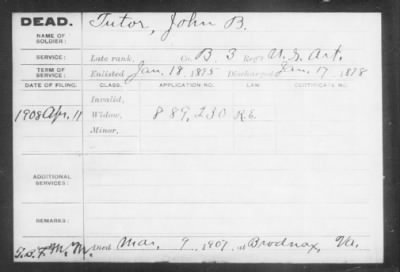 DEAD.
NAME OF SOLDIER: Tutor, John B.
SERVICE: Late rank, Co. B, 3 Reg't U. S. Art.
TERM OF SERVICE: Enlisted Jan. 18, 1875 Discharged Jan. 17, 1878
DATE OF FILING. CLASS. APPLICATION NO. LAW. CERTIFICATE NO.
Invalid,
1908 Apr. 11 Widow, 889,230 R.E.
Minor,
ADDITIONAL SERVICES:
REMARKS:
Died Mar. 9, 1907, at Brodnax, Va.